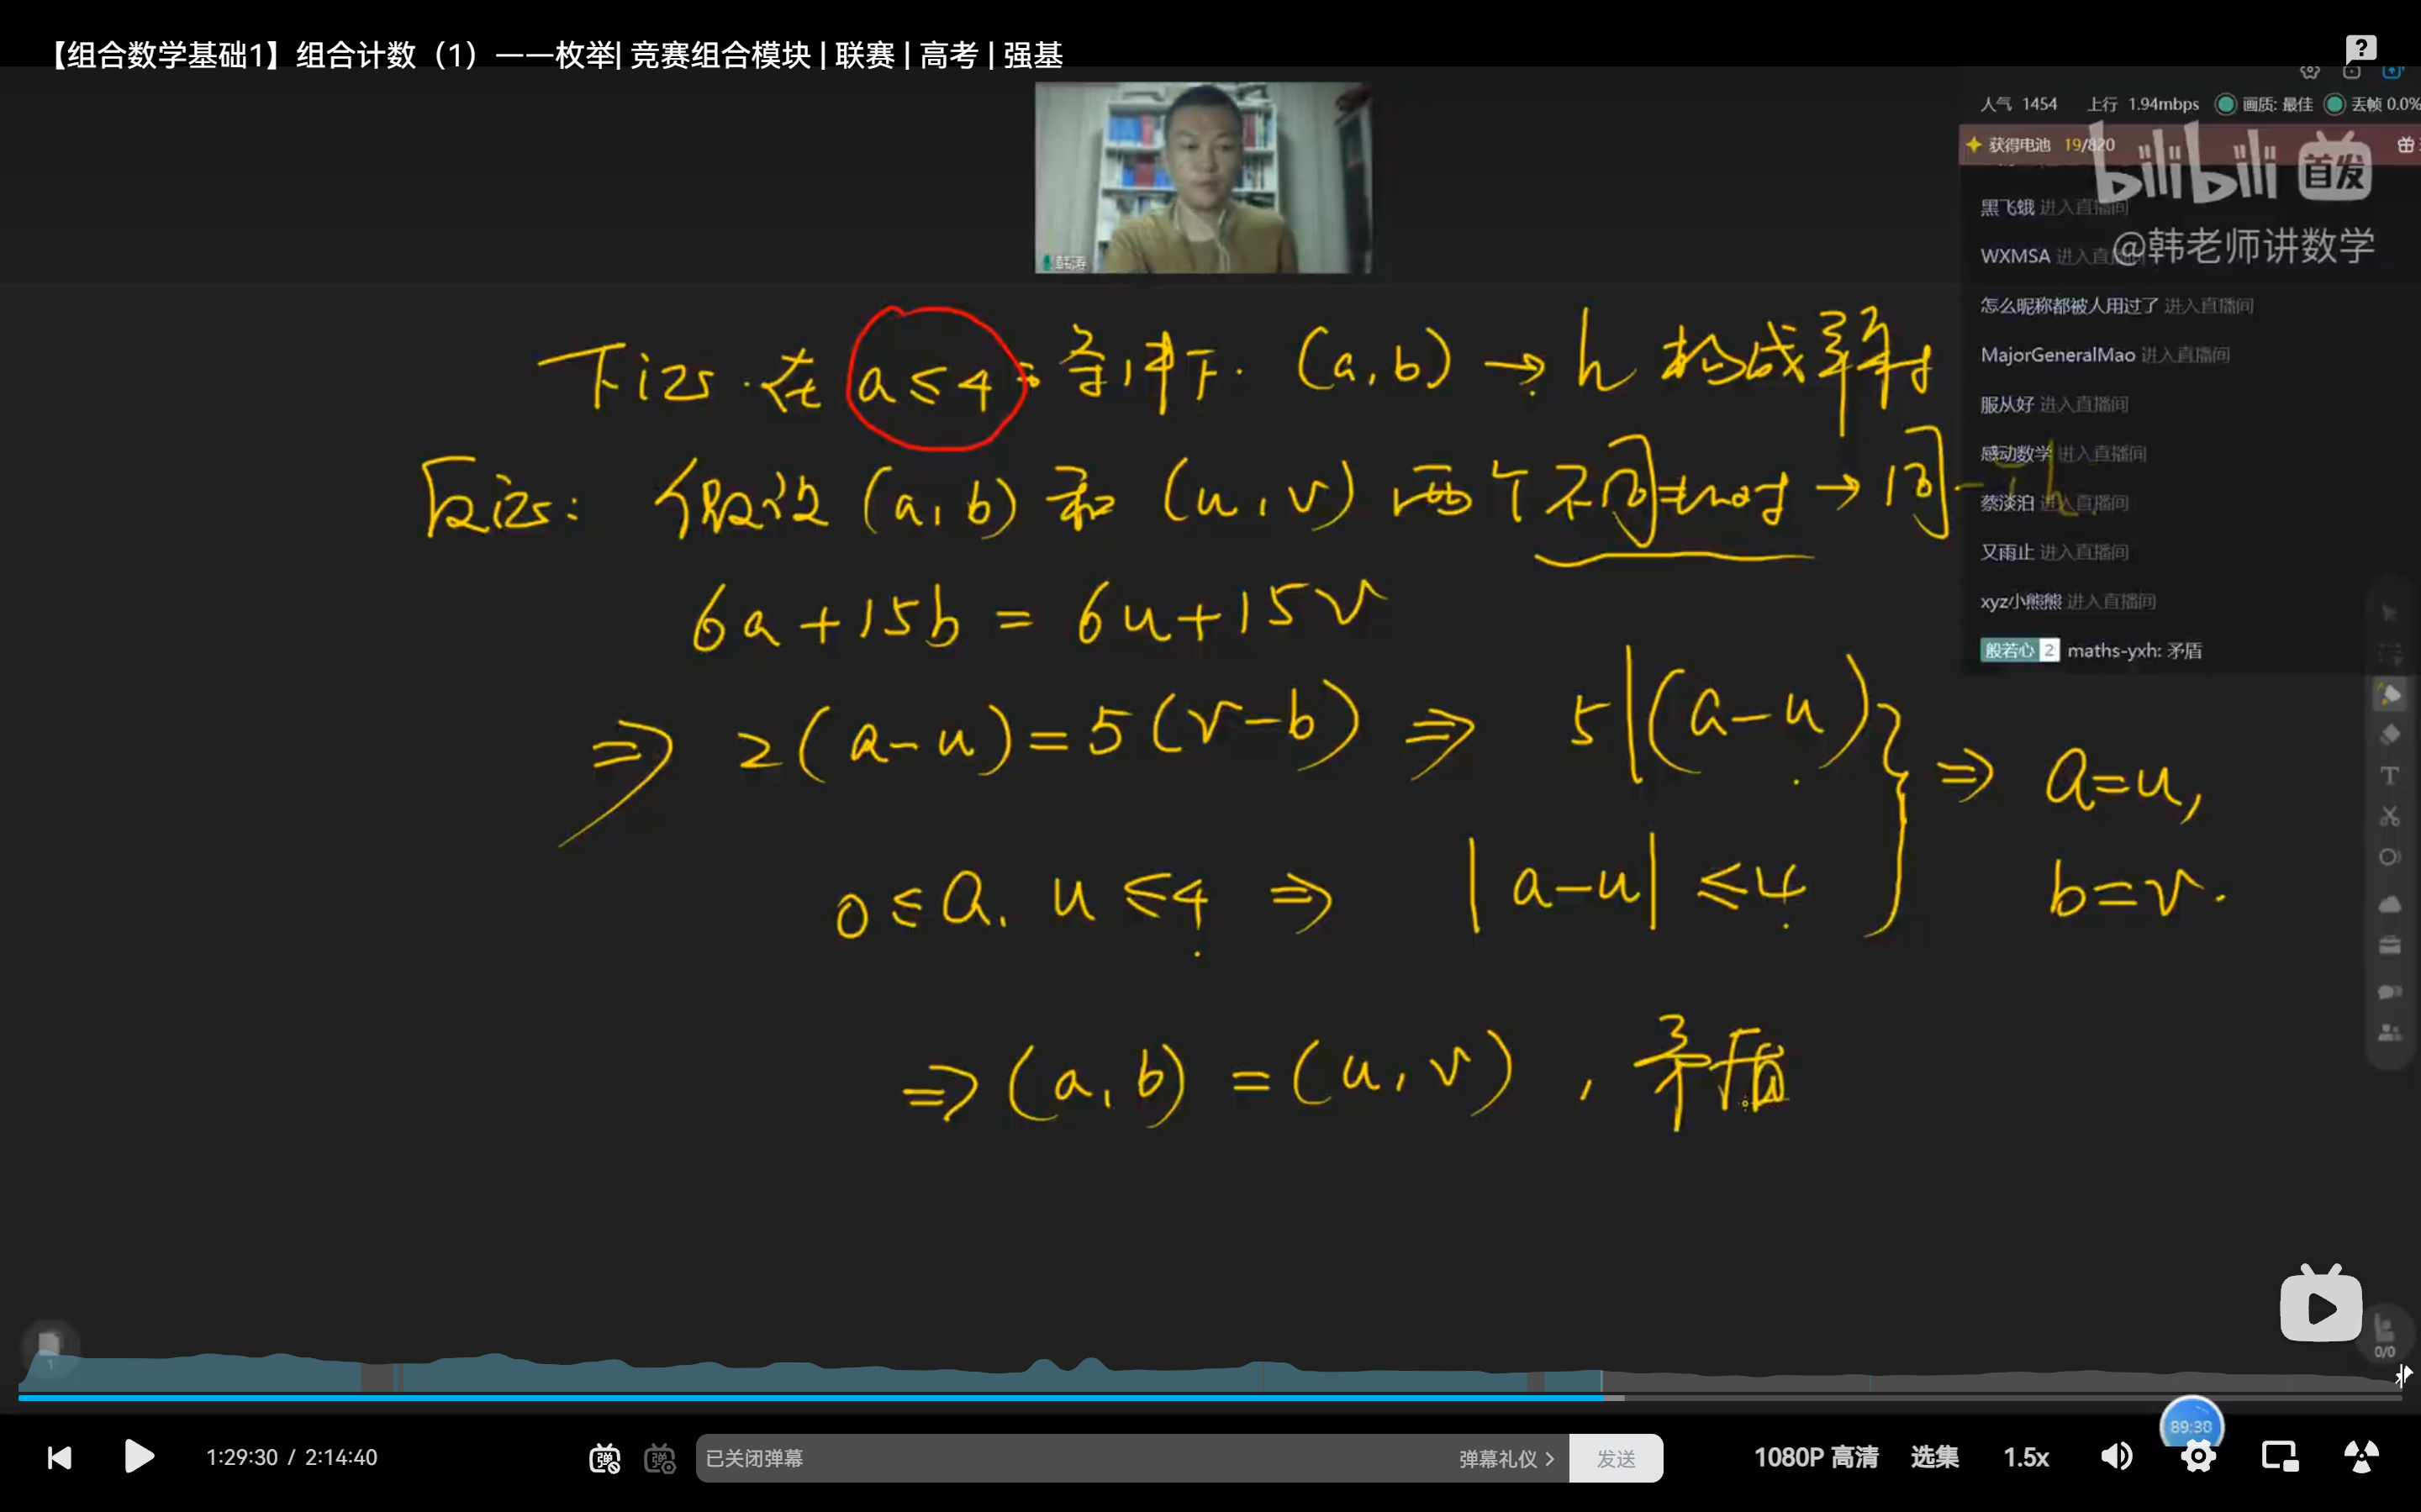 【组合数学基础1】组合计数（1）——枚举| 竞赛组合模块 | 联赛 | 高考 | 强基
人气 1454 上行 1.94mbps 画质: 最佳 丢帧 0.0%
获得电池 19/820
bilibili 首发
黑飞蛾 进入直播间
WXMSA 进入直播间
@韩老师讲数学
韩涛
怎么昵称都被人用过了 进入直播间
MajorGeneralMao 进入直播间
服从好 进入直播间
感动数学 进入直播间
蔡淡泊 进入直播间
又雨止 进入直播间
xyz小熊熊 进入直播间
般若心 2 maths-yxh: 矛盾
下证.在 a≤4 条件下. (a,b) → h 构成单射
反证: 假设 (a,b) 和 (u,v) 两个不同的对 → 同一个h
6a+15b = 6u+15v
⇒ 2(a-u)=5(v-b) ⇒ 5|(a-u) } ⇒ a=u,
0≤a, u≤4 ⇒ |a-u| ≤4 b=v.
⇒(a,b) =(u,v) , 矛盾
1
0/0
89:30
1:29:30 / 2:14:40 弹 弹 已关闭弹幕 弹幕礼仪 > 发送 1080P 高清 选集 1.5x